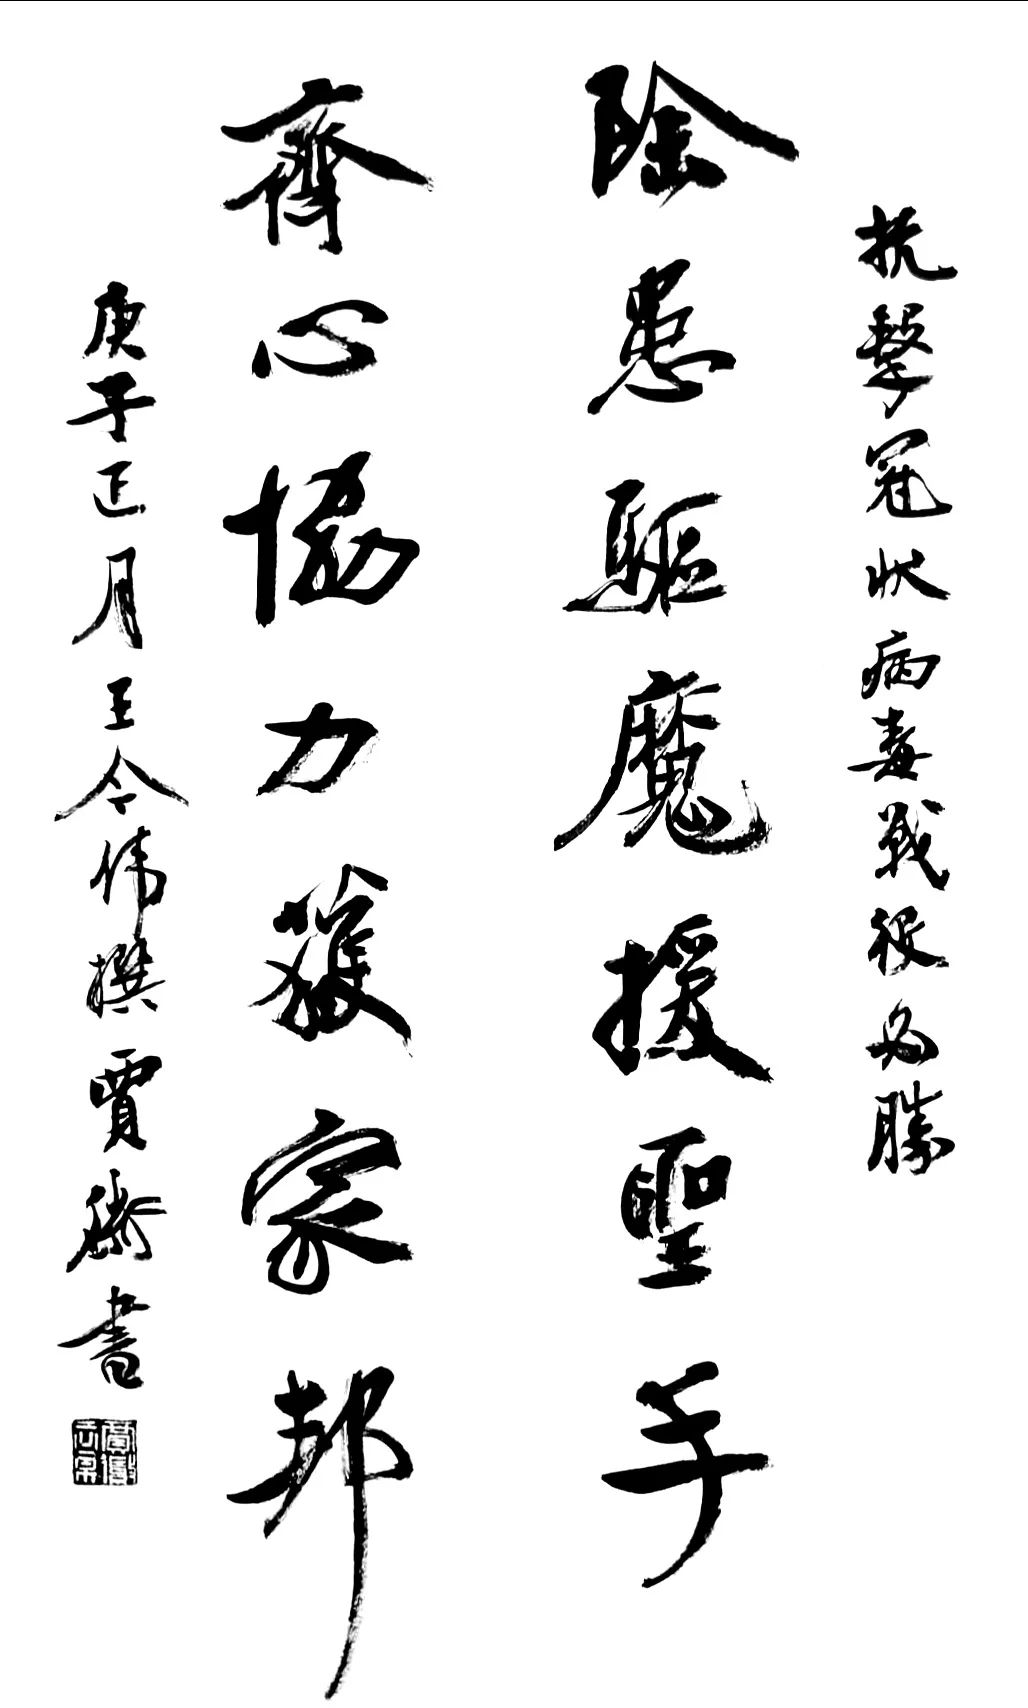 抗擊冠狀病毒戰役必勝
除患驅魔援聖手
齊心協力護家邦
庚子正月王令偉撰賈衛書